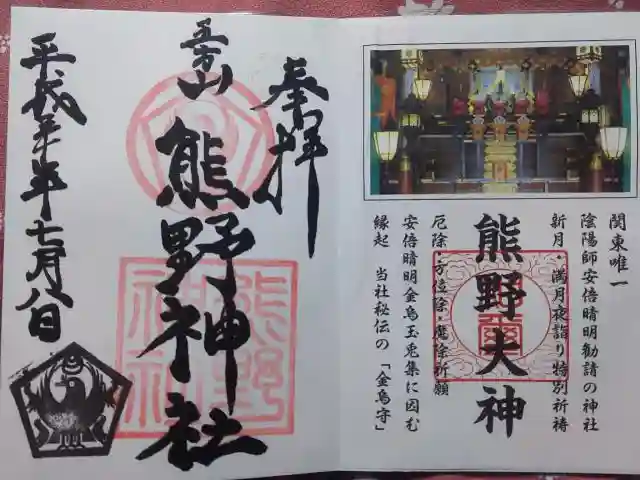 関東唯一
陰陽師安倍晴明勧請の神社
新月・満月夜詣り特別祈祷
熊野大神
厄除・方位除・魔除祈願
安倍晴明金烏玉兎集に因む
縁起 当社秘伝の「金烏守」
奉拝
五方山
熊野神社
熊野
神社
平成年七月八日